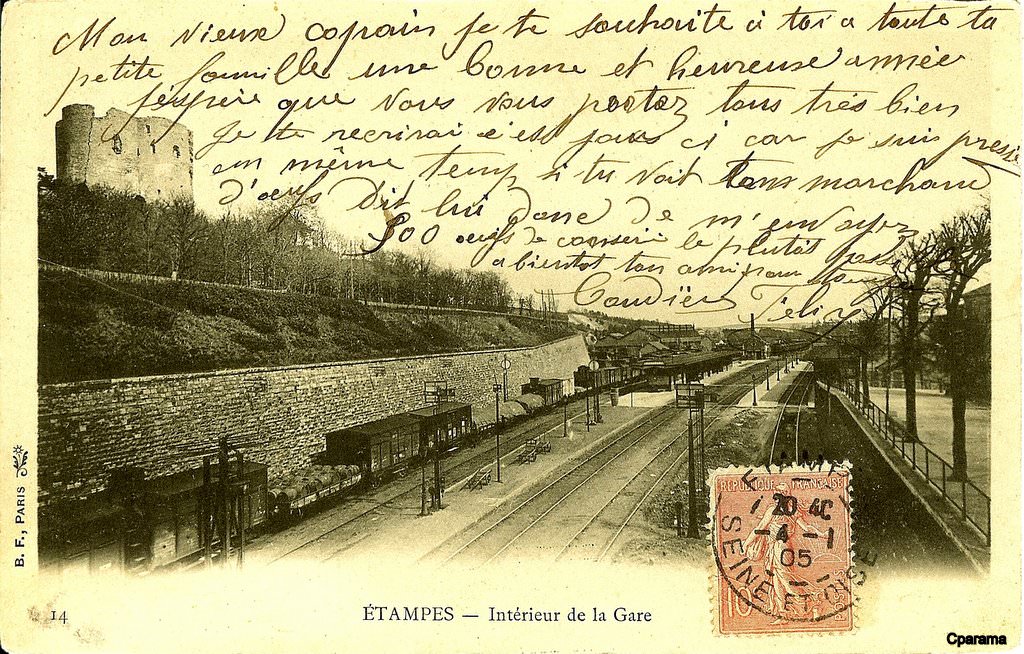 Mon vieux copain je te souhaite à toi a toute ta
petite famille une bonne et heureuse année
j'espère que vous vous portez tous très bien
Je te recrirai d'ici car je suis pressé
en même temps si tu voit ton marchand
d'oeufs dit lui donc de m'envoyez
300 oeufs de conserve le plutôt
a bientôt ton ami
Félix
B. F., PARIS
RÉPUBLIQUE FRANÇAISE
4 - 1
05
SEINE ET OISE
10
14
ÉTAMPES — Intérieur de la Gare
Cparama